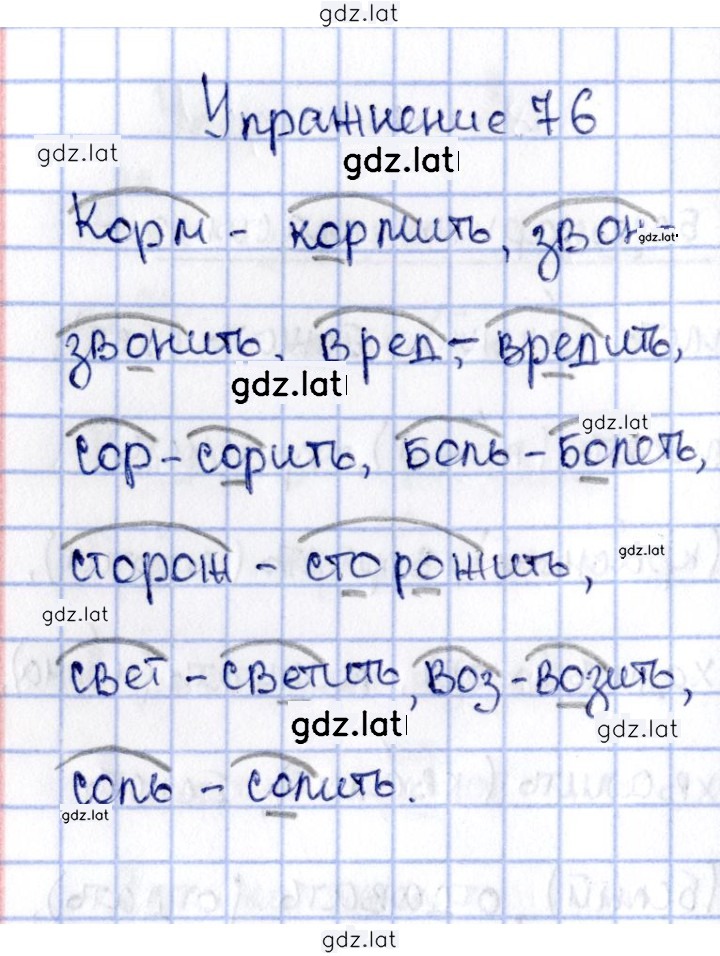 gdz.lat
Упражнение 76
gdz.lat
gdz.lat
Корм - кормить, звон -
gdz.lat
звонить. вред, - вредить,
gdz.lat
gdz.lat
сор - сорить, боль - болеть,
сторож - сторожить,
gdz.lat
gdz.lat
свет - светить, воз - возить,
gdz.lat
gdz.lat
соль - солить.
gdz.lat
gdz.lat